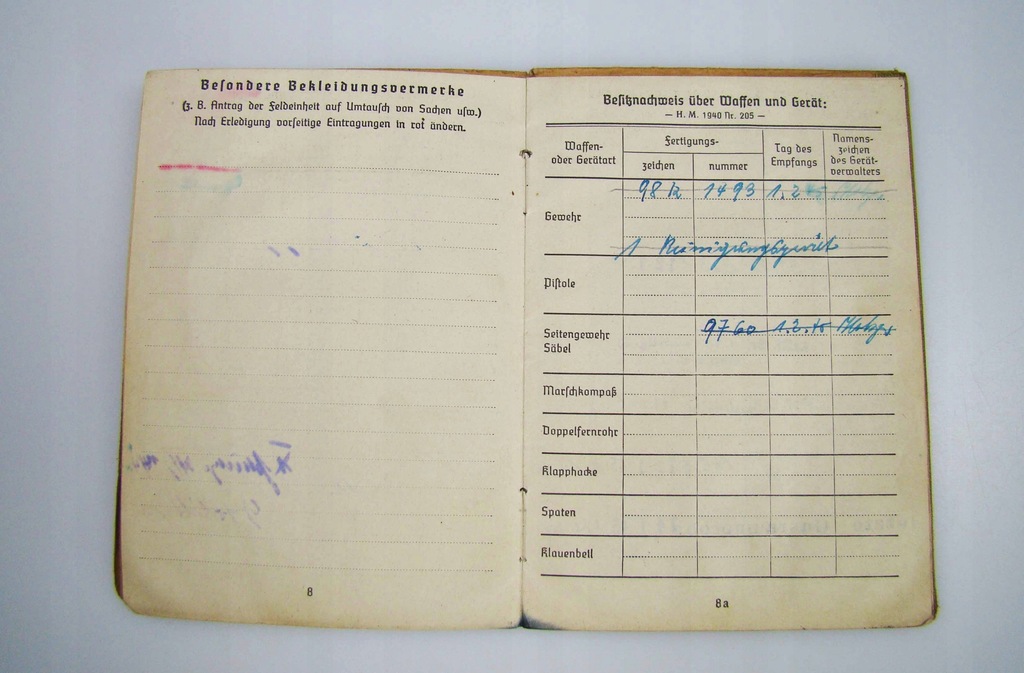 Besondere Bekleidungsvermerke
(z. B. Antrag der Feldeinheit auf Umtausch von Sachen usw.)
Nach Erledigung vorseitige Eintragungen in rot ändern.
8
Besitznachweis über Waffen und Gerät:
— H. M. 1940 Nr. 205 —
Waffen- oder Gerätart
Fertigungs-
zeichen
nummer
Tag des Empfangs
Namens- zeichen des Gerät- verwalters
Gewehr
98 k 1493 1.2.
1 Reinigungsgerät
Pistole
Seitengewehr
Säbel
9760 1.2.
Marschkompaß
Doppelfernrohr
Klapphacke
Spaten
Klauenbeil
8a